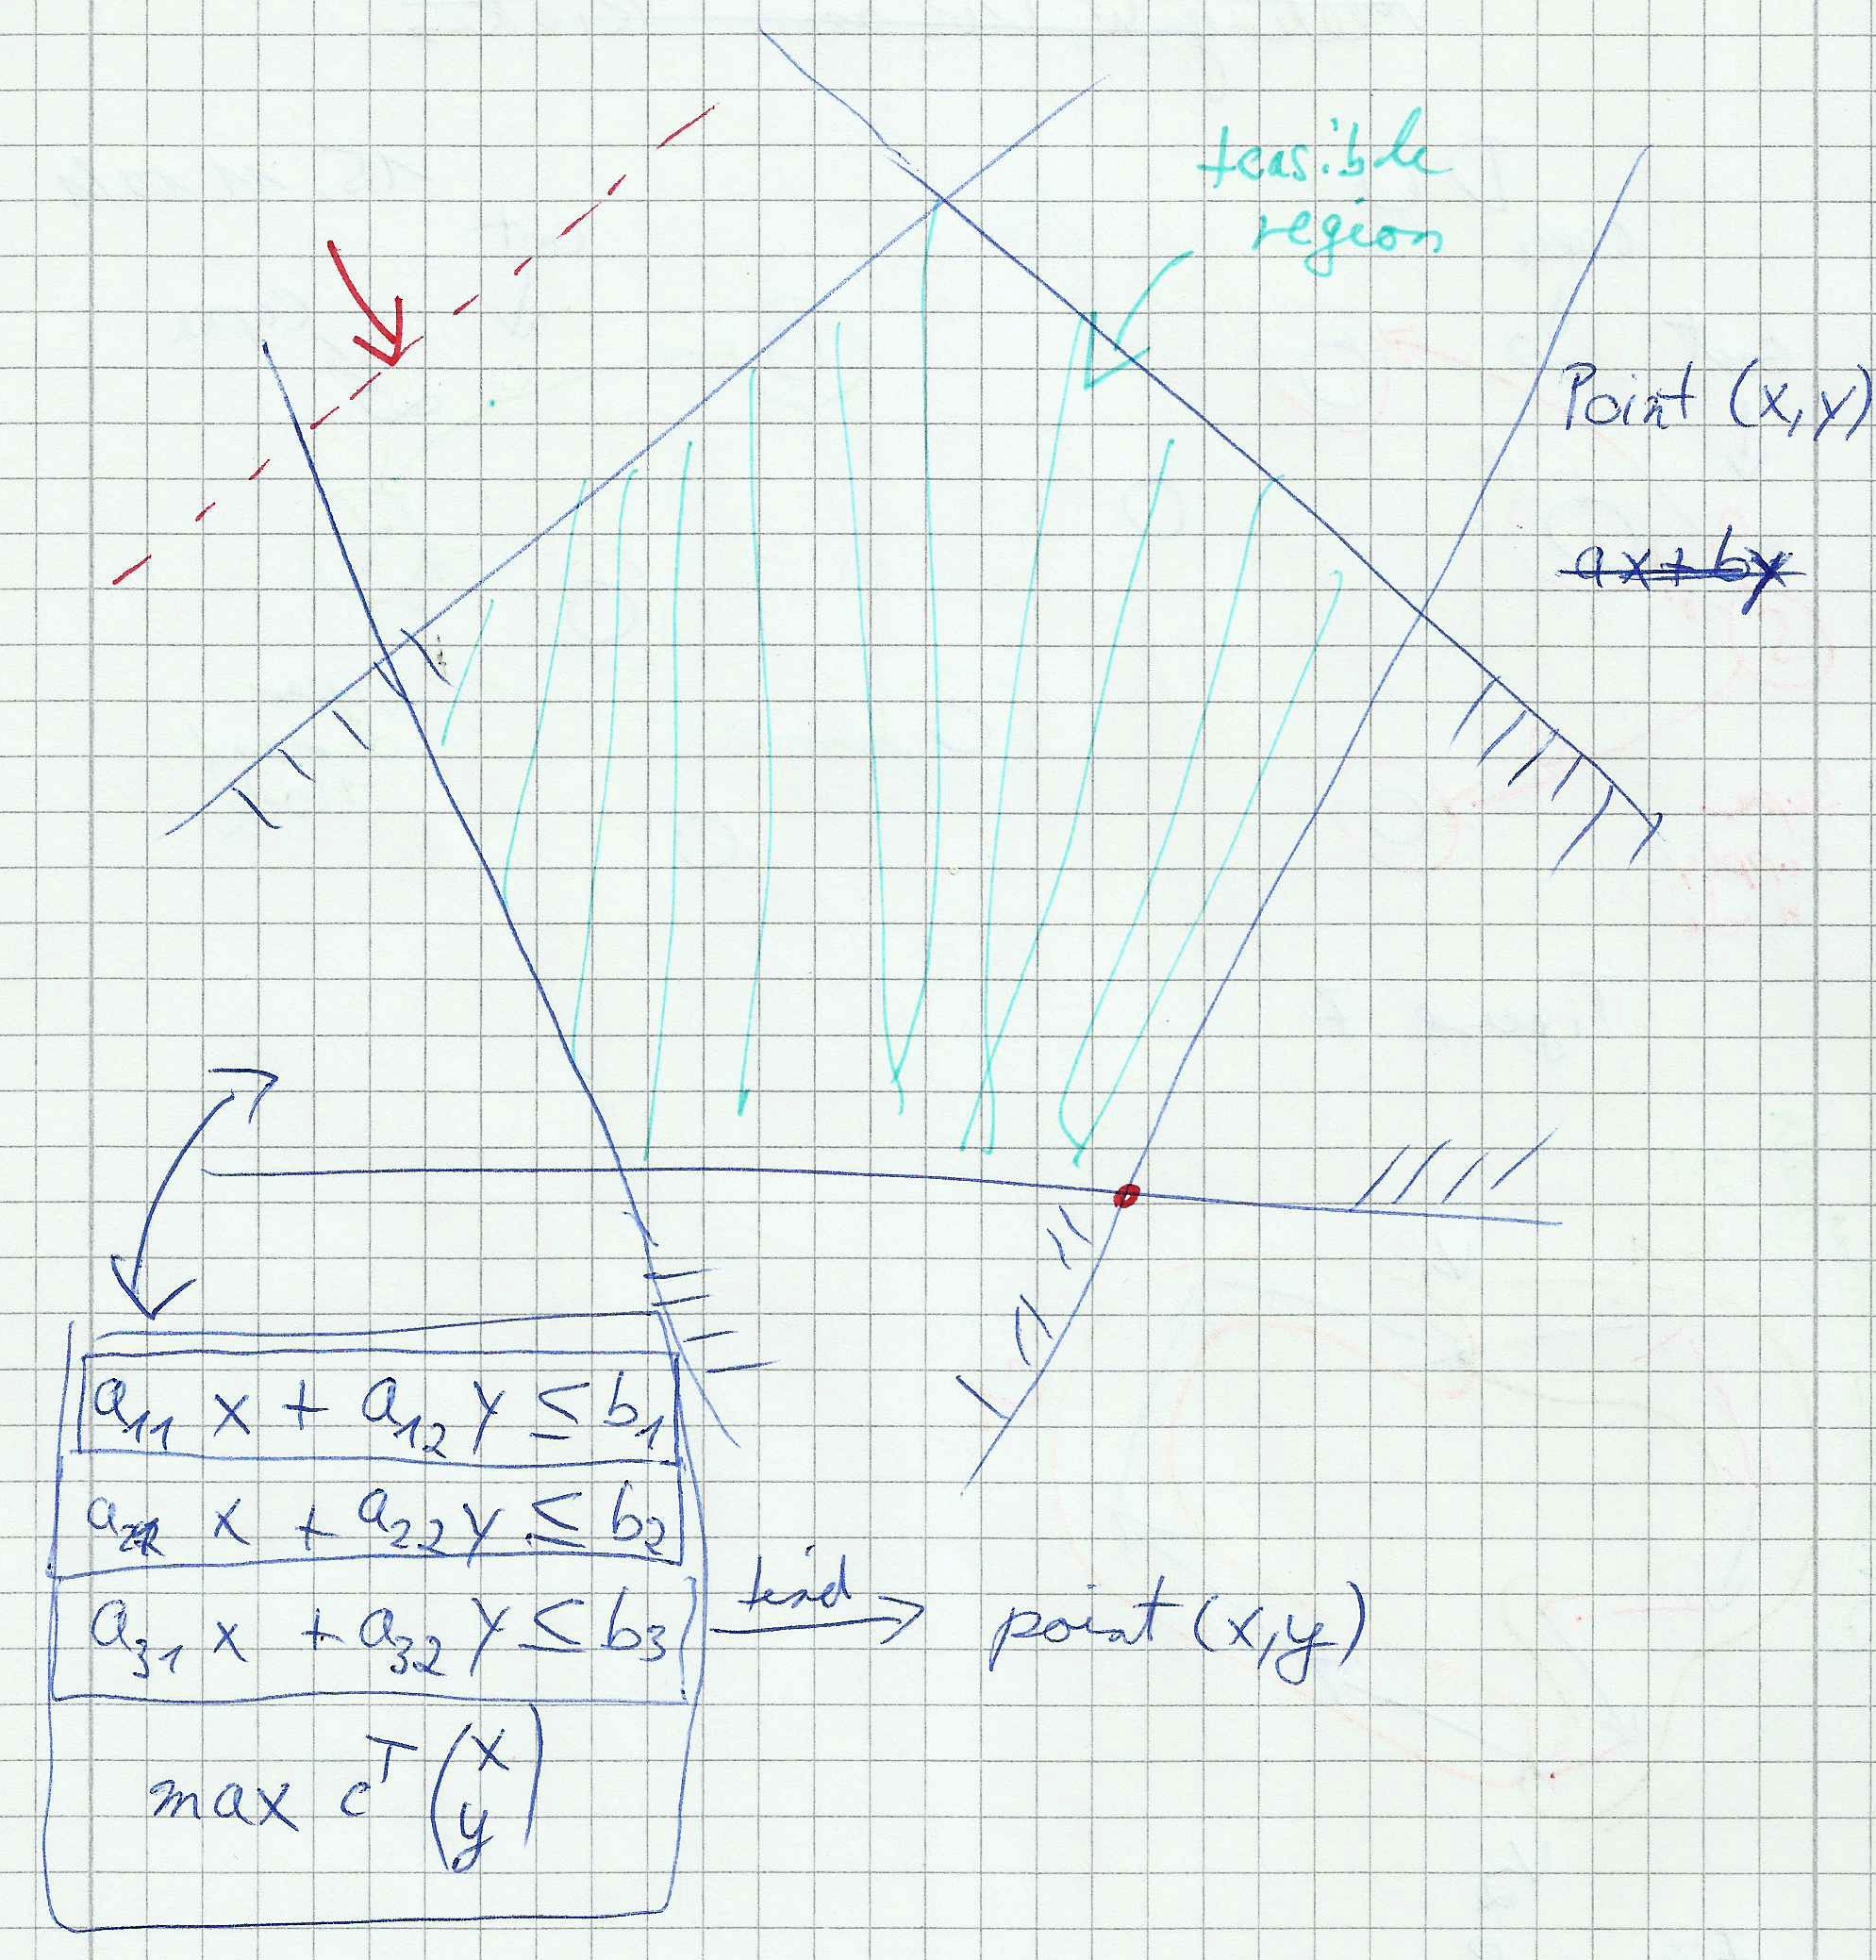 feasible
region
Point (x,y)
ax+by
a₁₁ x + a₁₂ y ≤ b₁
a₂₁ x + a₂₂ y ≤ b₂
a₃₁ x + a₃₂ y ≤ b₃
find
point (x,y)
max cᵀ (x
y)